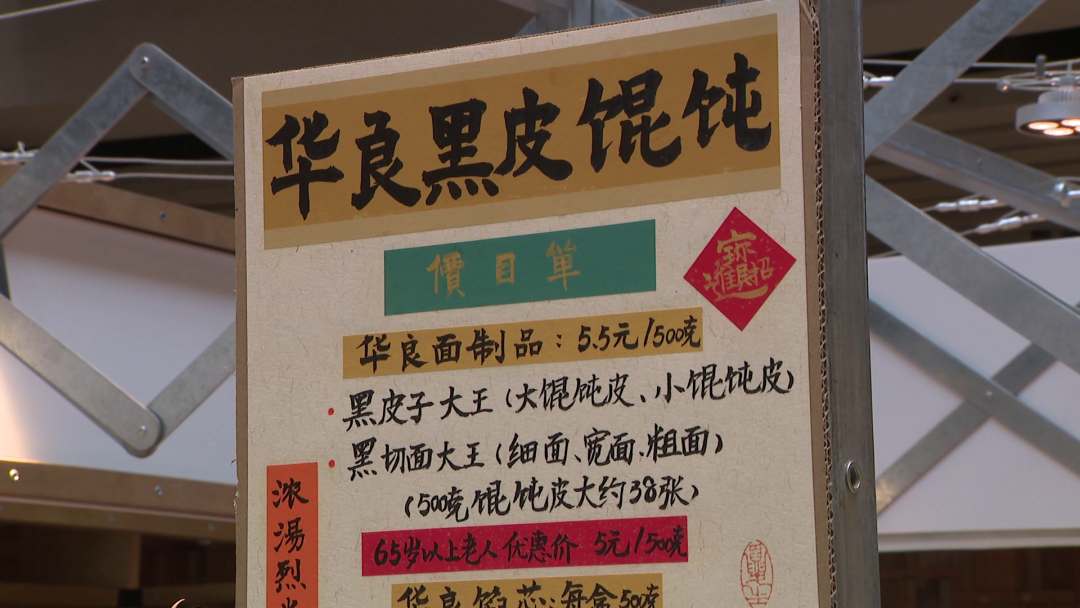 华良黑皮馄饨
價目单
招財進寳
华良面制品：5.5元/500克
黑皮子大王（大馄饨皮、小馄饨皮）
黑切面大王（细面、宽面、粗面）
（500克馄饨皮大约38张）
65岁以上老人优惠价 5元/500克
华良馅芯：每盒500克
浓湯烈